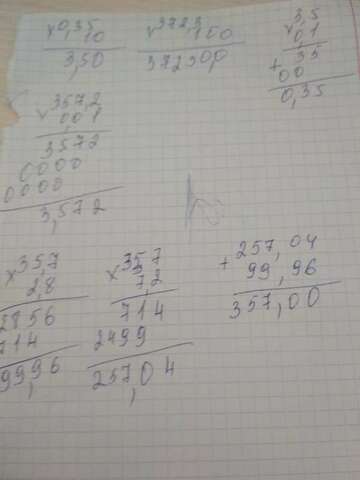 ×0,35
10
3,50
×372,3
100
37230,0
×3,5
0,1
35
+
00
0,35
×357,2
0,01
3572
0000
0000
3,572
×35,7
2,8
2856
714
99,96
×35,7
7,2
714
2499
257,04
257,04
+
99,96
357,00